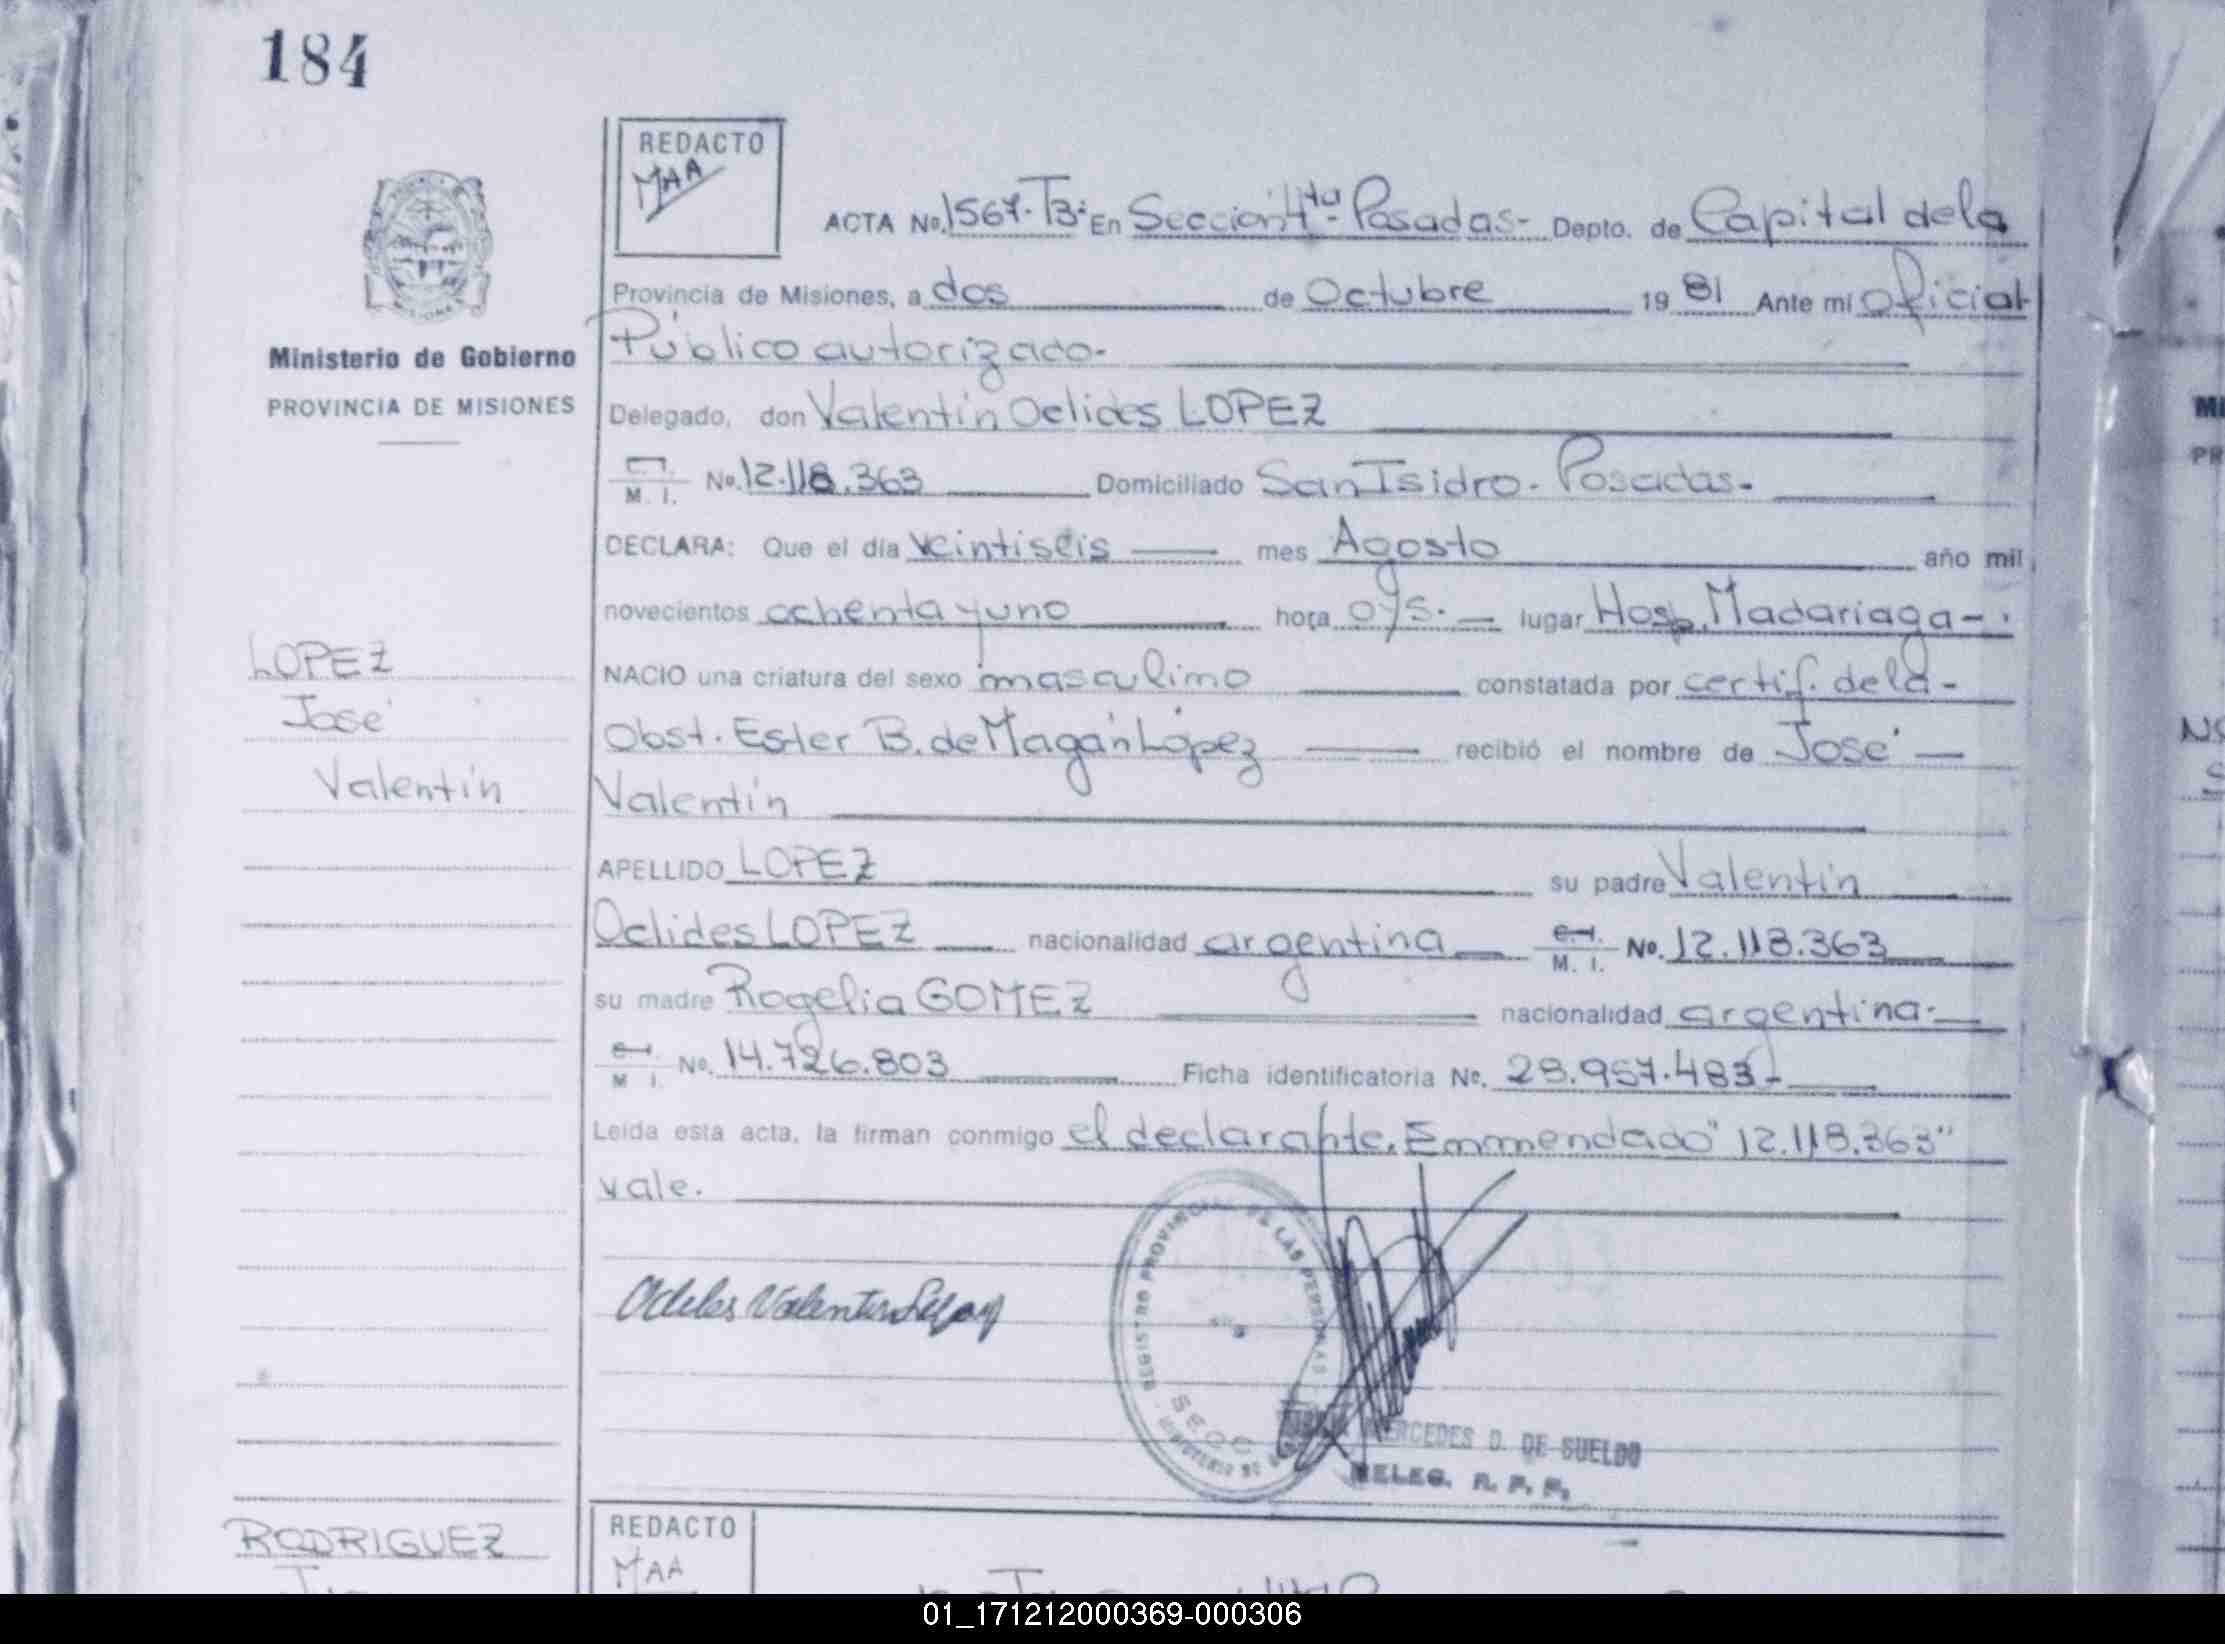 184
REDACTO
MAA
ACTA No. 1567. T3: En Sección 4ta. Posadas- Depto. de Capital de la
Provincia de Misiones, a dos de Octubre 19 81 Ante mi oficial
Público autorizado.
Ministerio de Gobierno
PROVINCIA DE MISIONES
Delegado, don Valentín Oclides LOPEZ
M. I. No. 12.118.363 Domiciliado San Isidro. Posadas.
DECLARA: Que el día veintiseis mes Agosto año mil
novecientos ochenta y uno hora 07s. lugar Hosp. Madariaga-
NACIO una criatura del sexo masculino constatada por certif. de la-
Obst. Ester B. de Magán López recibió el nombre de José
Valentín
LOPEZ
José
Valentín
APELLIDO LOPEZ su padre Valentín
Oclides LOPEZ nacionalidad argentina M. I. No. 12.118.363
su madre Rogelia GOMEZ nacionalidad argentina.
M I. No. 14.726.803 Ficha identificatoria No. 28.957.483
Leída esta acta, la firman conmigo el declarante. Enmendado "12.118.363"
vale.
REGISTRO PROVINCIAL DE LAS PERSONAS
MERCEDES D. DE SUELDO
DELEG. R. P. P.
RODRIGUEZ
REDACTO
MAA
01_171212000369-000306